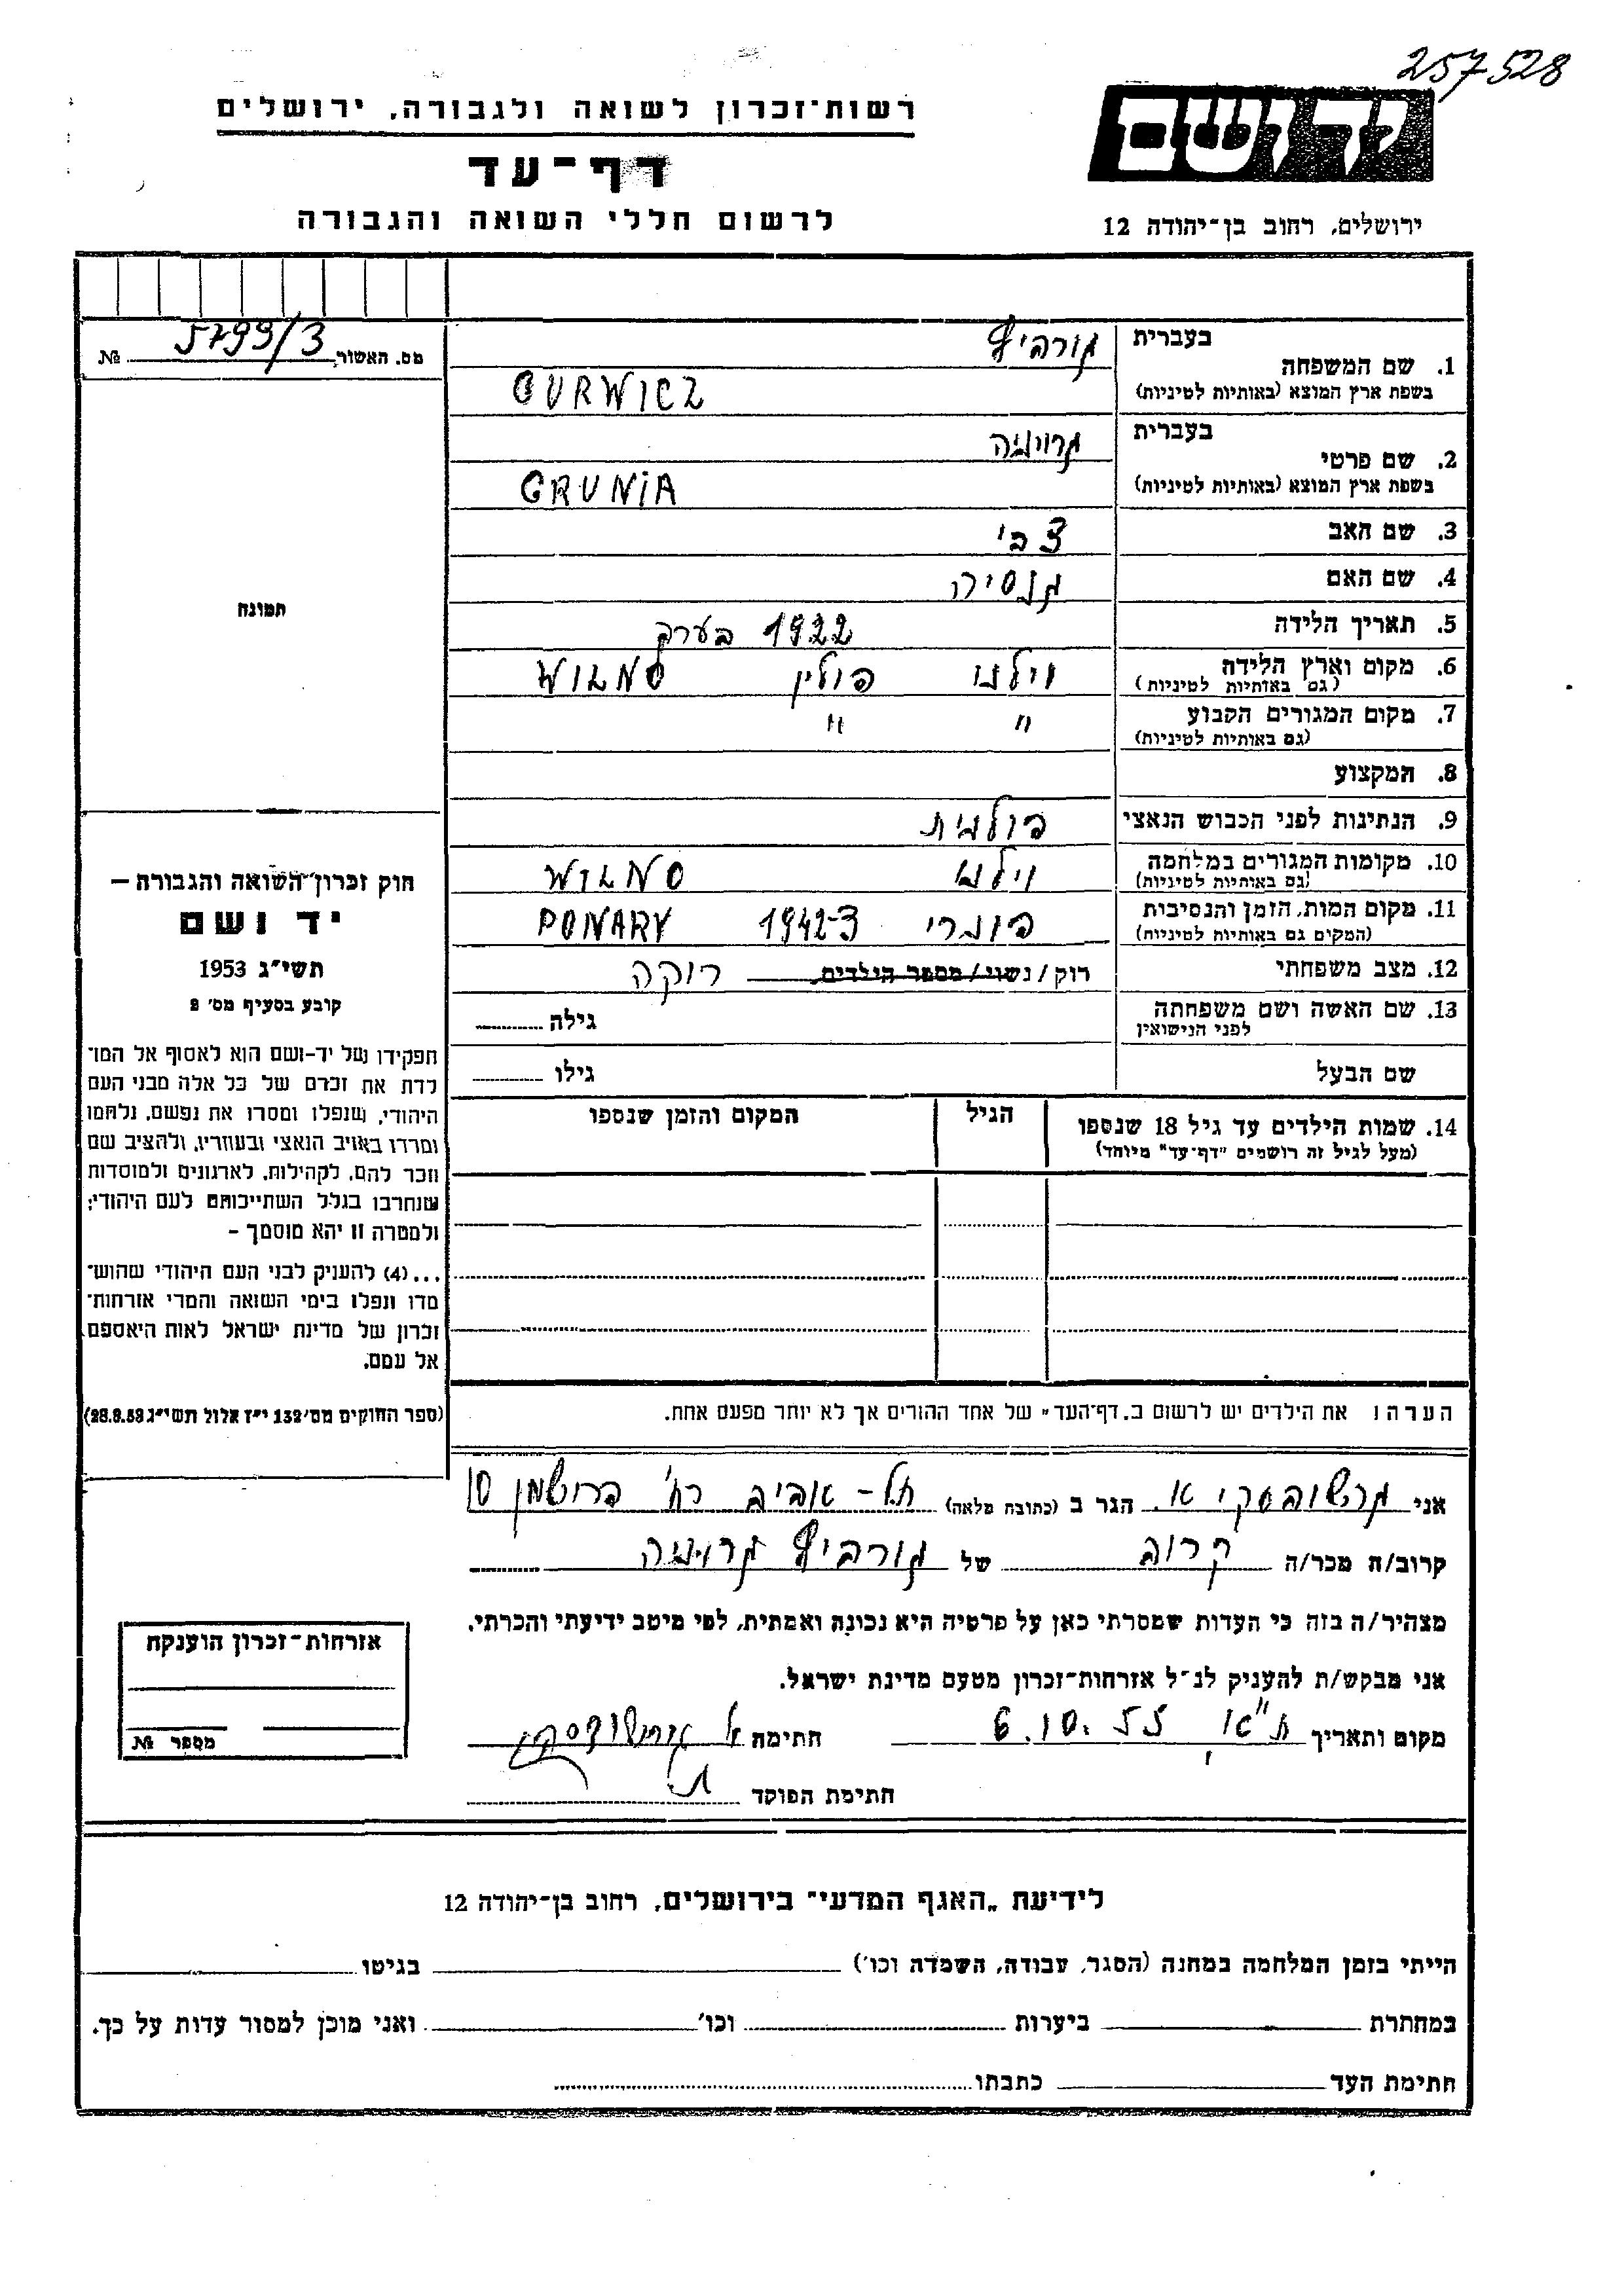 257528
יד ושם
רשות־זכרון לשואה ולגבורה, ירושלים
דף־עד
לרשום חללי השואה והגבורה
ירושלים, רחוב בן־יהודה 12
מס. האשור 5799/3 №
תמונה
חוק זכרון השואה והגבורה –
יד ושם
תשי"ג 1953
קובע בסעיף מס' 2
תפקידו של יד-ושם הוא לאסוף אל המו־
לדת את זכרם של כל אלה מבני העם
היהודי, שנפלו ומסרו את נפשם, נלחמו
ומרדו באויב הנאצי ובעוזריו, ולהציב שם
וזכר להם, לקהילות, לארגונים ולמוסדות
שנחרבו בגלל השתייכותם לעם היהודי;
ולמטרה זו יהא מוסמך –
...(4) להעניק לבני העם היהודי שהוש־
מדו ונפלו בימי השואה והמרי אזרחות־
זכרון של מדינת ישראל לאות היאספם
אל עמם.
(ספר החוקים מס' 132 י"ז אלול תשי"ג 28.8.53)
בעברית גורביץ
1. שם המשפחה
בשפת ארץ המוצא (באותיות לטיניות) GURWICZ
בעברית גרוניה
2. שם פרטי
בשפת ארץ המוצא (באותיות לטיניות) GRUNIA
3. שם האב צבי
4. שם האם
5. תאריך הלידה 1922 בערך
6. מקום וארץ הלידה וילנו פולין WILNO
(גם באותיות לטיניות)
7. מקום המגורים הקבוע " "
(גם באותיות לטיניות)
8. המקצוע
9. הנתינות לפני הכבוש הנאצי פולנית
10. מקומות המגורים במלחמה וילנו WILNO
(גם באותיות לטיניות)
11. מקום המות, הזמן והנסיבות פונרי 1942-3 PONARY
(המקום גם באותיות לטיניות)
12. מצב משפחתי רוק/נשוי/מספר הילדים רווקה
13. שם האשה ושם משפחתה גילה
לפני הנישואין
שם הבעל גילו
14. שמות הילדים עד גיל 18 שנספו הגיל המקום והזמן שנספו
(מעל לגיל זה רושמים "דף־עד" מיוחד)
הערה: את הילדים יש לרשום ב„דף־העד" של אחד ההורים אך לא יותר מפעם אחת.
אני א. הגר ב (כתובת מלאה) תל-אביב רח' 10
קרוב/ה מכר/ה קרוב של גורביץ גרוניה
מצהיר/ה בזה כי העדות שמסרתי כאן על פרטיה היא נכונה ואמתית, לפי מיטב ידיעתי והכרתי.
אני מבקש/ת להעניק לנ"ל אזרחות־זכרון מטעם מדינת ישראל.
מקום ותאריך ת"א, 6.10.55 חתימה
חתימת הפוקד
אזרחות־זכרון הוענקה
מספר №
לידיעת „האגף המדעי" בירושלים, רחוב בן־יהודה 12
הייתי בזמן המלחמה במחנה (הסגר, עבודה, השמדה וכו') בגיטו
במחתרת ביערות וכו' ואני מוכן למסור עדות על כך.
חתימת העד כתבתו